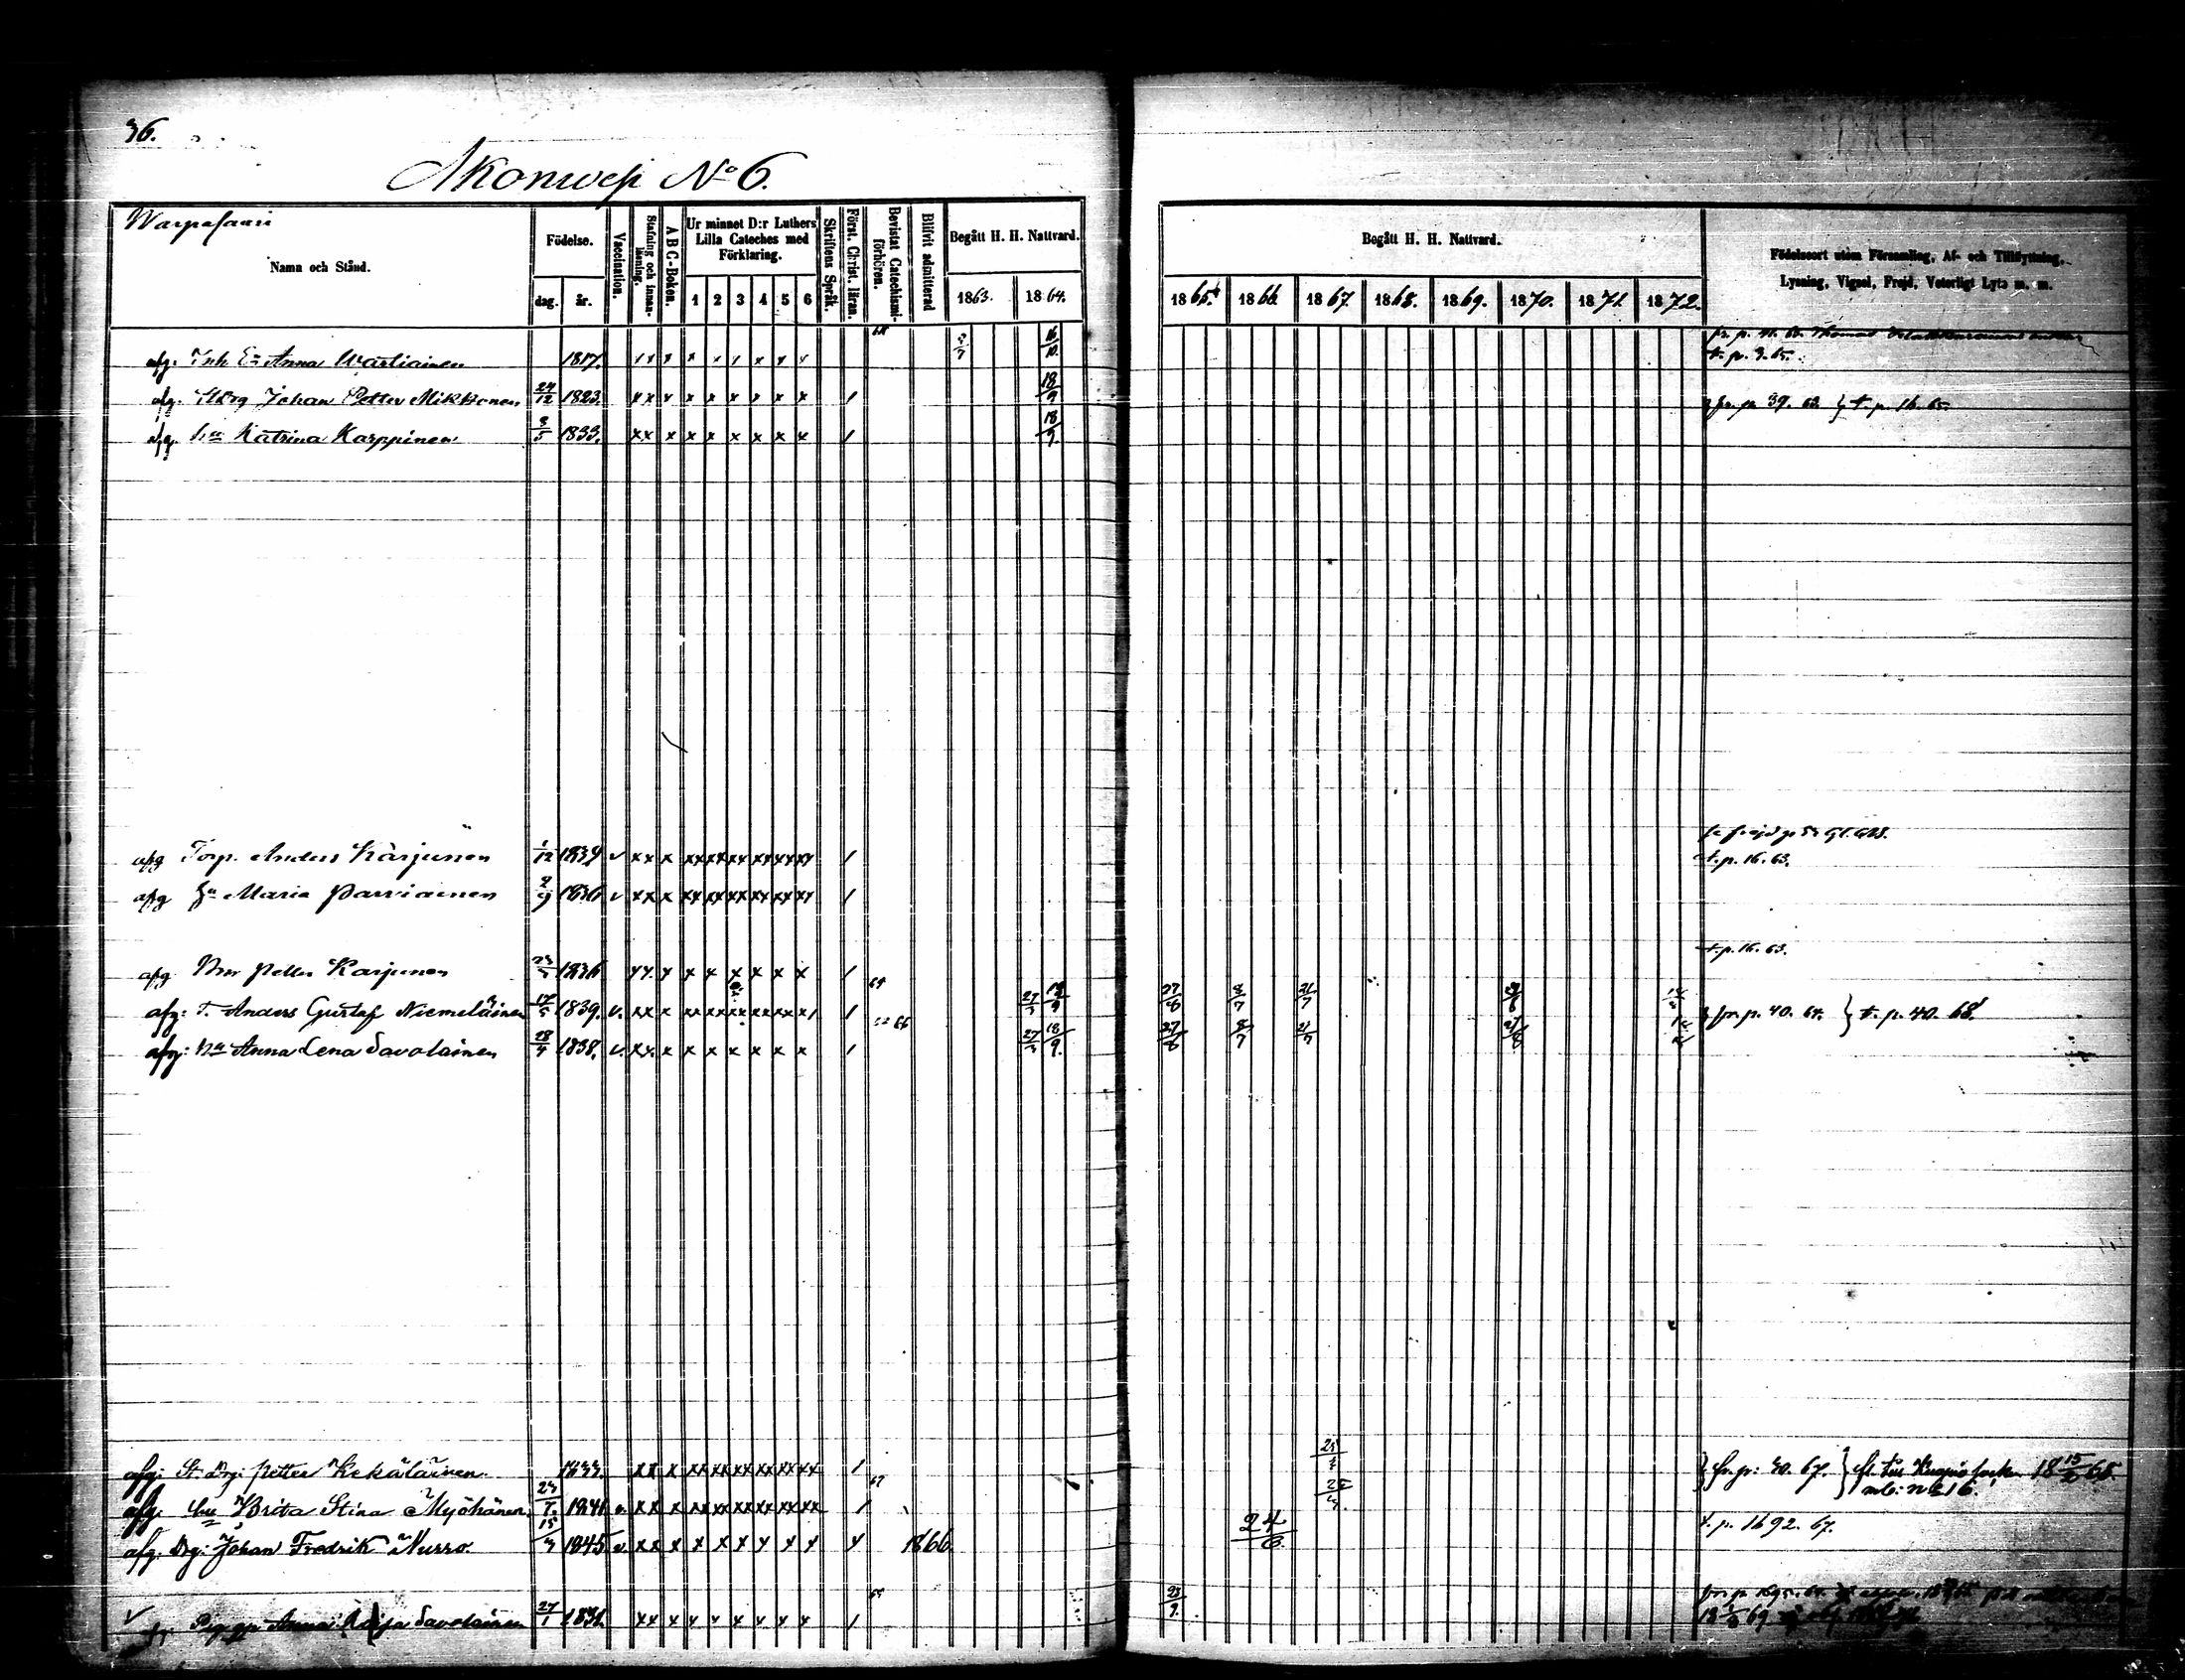 36.
Akonwesi No 6.
Warpasaari
Namn och Stånd.
Födelse.
dag. år.
Vaccination.
Stafning och innanläsning.
A B C-Boken.
Ur minnet D:r Luthers Lilla Cateches med Förklaring.
1 2 3 4 5 6
Skriftens Språk.
Först. Christ. läran.
Bevistat Catechismiförhören.
Blifvit admitterad
Begått H. H. Nattvard.
1863. 1864.
Begått H. H. Nattvard.
1865. 1866 1867. 1868. 1869. 1870. 1871. 1872.
Födelseort utom Församling, Af- och Tillflyttning,
Lysning, Vigsel, Frejd, Veterligt Lyte m. m.
afg. Inh. E: Anna Wartiainen 1817. x x x x x x x x x 3/7 16/10
t. p. 3. 65.
afg. St Drg Johan Petter Mikkonen 24/12 1823. x x x x x x x x x 1 18/9 fr. p. 39. 63. } t. p. 16. 65.
afg. hu Katrina Karppinen 3/5 1833. x x x x x x x x x 1 18/9
afg Torp. Anders Karjunen 1/12 1834 v x x x xx xx xx xx xx xx 1 t. p. 16. 63.
afg Hu Maria Parviainen 2/9 1836 v x x x xx xx xx xx xx xx 1
afg Bror Petter Karjunen 1836 x x x x x x x x x 1 t. p. 16. 63.
afg: T. Anders Gustaf Niemeläinen 17/5 1839. v. x x x xx xx xx xx xx x 1 64 27/3 18/9 27/6 8/7 21/7 } fr. p. 40. 64. } t. p. 40. 68.
afg: hu Anna Lena Savolainen 28/4 1838. v. x x x x x x x x x 1 66 27/3 18/9. 27/6 8/7 21/7
afg: St. Drg: Petter Kekäläinen. 1833. x x x xx xx xx xx xx xx 1 } fr. p: 40. 67. } fl. till Kuopio socken 18 15/2 68.
mb: n 16.
afg. hu Brita Stina Myöhänen. 23/7. 1841. v. x x x xx xx xx xx xx xx 1 67
afg: Drg: Johan Fredrik Nurro. 15/3 1845. v. x x x x x x x x x x 1866 24/6. t. p. 1692. 67.
Pig. Anna Kaisa Savolainen 27/1 1831. x x x x x x x x x 1 65 23/9.